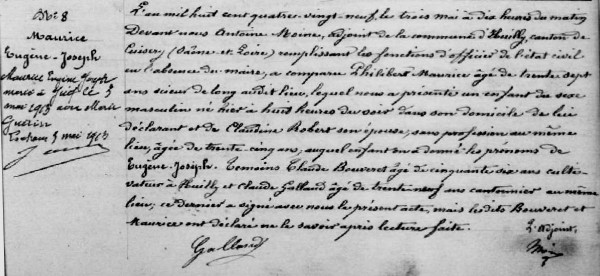 N° 8
Maurice
Eugène-Joseph
Maurice Eugène Joseph
marié à ce 5
mai 1913 avec Marie
Guérin
5 mai 1913
L'an mil huit cent quatre-vingt-neuf, le trois mai à dix heures du matin
Devant nous Antoine Moine, adjoint de la commune d'Huilly, canton de
Cuisery (Saône et Loire) remplissant les fonctions d'officier de l'état civil
en l'absence du maire, a comparu Philibert Maurice âgé de trente sept
ans scieur de long audit lieu, lequel nous a présenté un enfant du sexe
masculin né hier à huit heures du soir dans son domicile de lui
déclarant et de Claudine Robert son épouse, sans profession au même
lieu, âgée de trente cinq ans, auquel enfant on a donné les prénoms de
Eugène-Joseph. Témoins Claude Bouveret âgé de cinquante six ans culti-
vateur à Huilly et Claude Galland âgé de trente neuf ans cantonnier au même
lieu, ce dernier a signé avec nous le présent acte, mais les dits Bouveret et
Maurice ont déclaré ne le savoir après lecture faite.
Galland
L'adjoint,